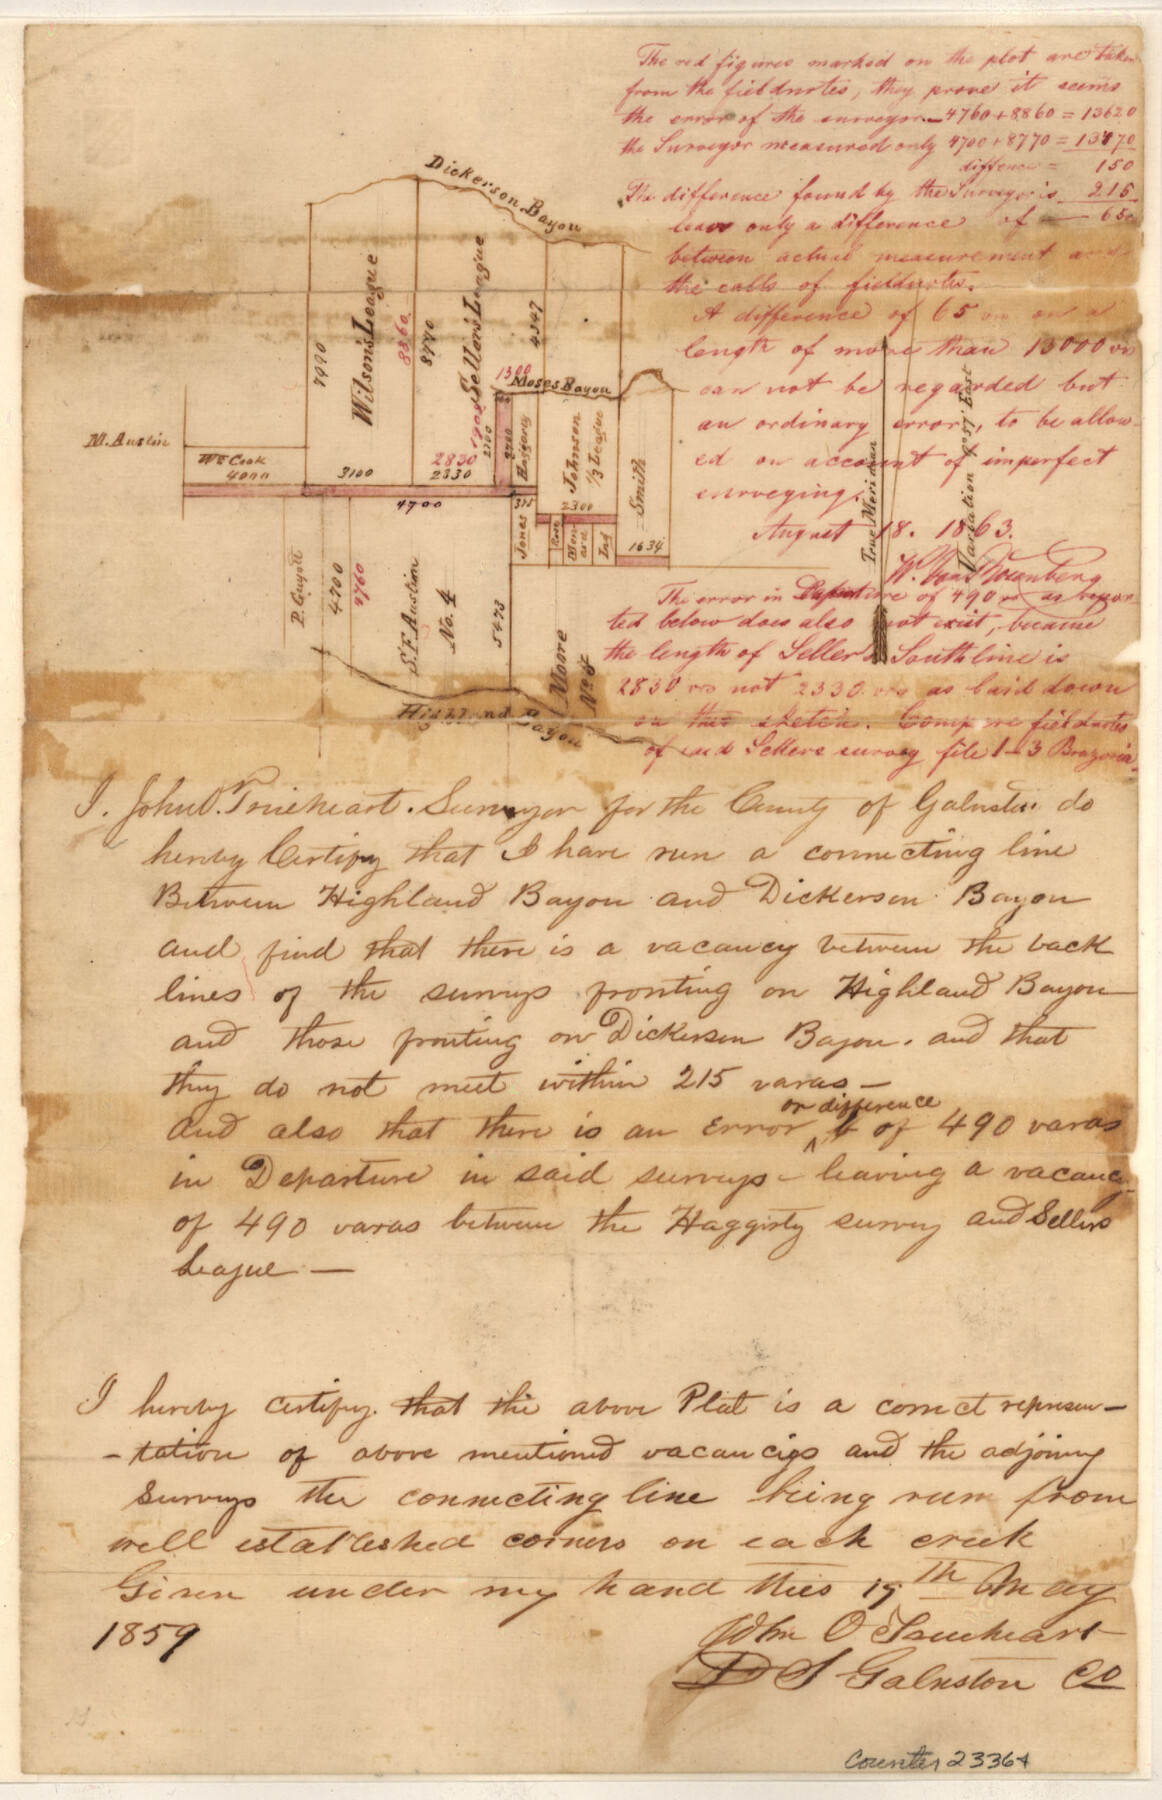 The red figures marked on the plot are taken
from the fieldnotes, they prove it seems
the error of the surveyor. 4760+8860 = 13620
the Surveyor measured only 4700+8770 = 13470
difference = 150
The difference found by the Surveyor is 215
leave only a difference of 65
between actual measurement and
the calls of fieldnotes.
A difference of 65 vrs on a
length of more than 13000 vrs
can not be regarded but
an ordinary error, to be allow-
ed on account of imperfect
surveying.
August 18. 1863.
W. Von Rosenberg
The error in Departure of 490 vrs as repor-
ted below does also not exist, because
the length of Sellers Southline is
2830 vrs not 2330 vrs as laid down
on this sketch. Compare fieldnotes
of said Sellers survey file 1-3 Brazoria.
Dickerson Bayou
Wilson's League
Sellers League
7990
8860
8770
4347
1300
Moses Bayou
M. Austin
Wm Cook
4000
3100
2830
2330
1900
2700
2700
Haggerty
Johnson
1/3 League
Smith
4700
311
2300
Jones
Ind
1634
P. Guyott
4700
4760
S.F. Austin
No. 4
5473
Moore
No 5
Highland Bayou
True Meridian
Variation 9°57' East
I. John O. Trueheart. Surveyor for the County of Galveston do
hereby Certify that I have run a connecting line
Between Highland Bayou and Dickerson Bayou
and find that there is a vacancy between the back
lines of the surveys fronting on Highland Bayou
and those fronting on Dickerson Bayou. and that
they do not meet within 215 varas —
or difference
and also that there is an Error ^ of 490 varas
in Departure in said surveys - leaving a vacancy
of 490 varas between the Haggerty survey and Sellers
League —
I hereby certify that the above Plat is a correct represen-
-tation of above mentioned vacancies and the adjoining
Surveys the connecting line being run from
well established corners on each creek
Given under my hand this 19th May
1859
John O Trueheart
D S Galveston Co
Counter 23364